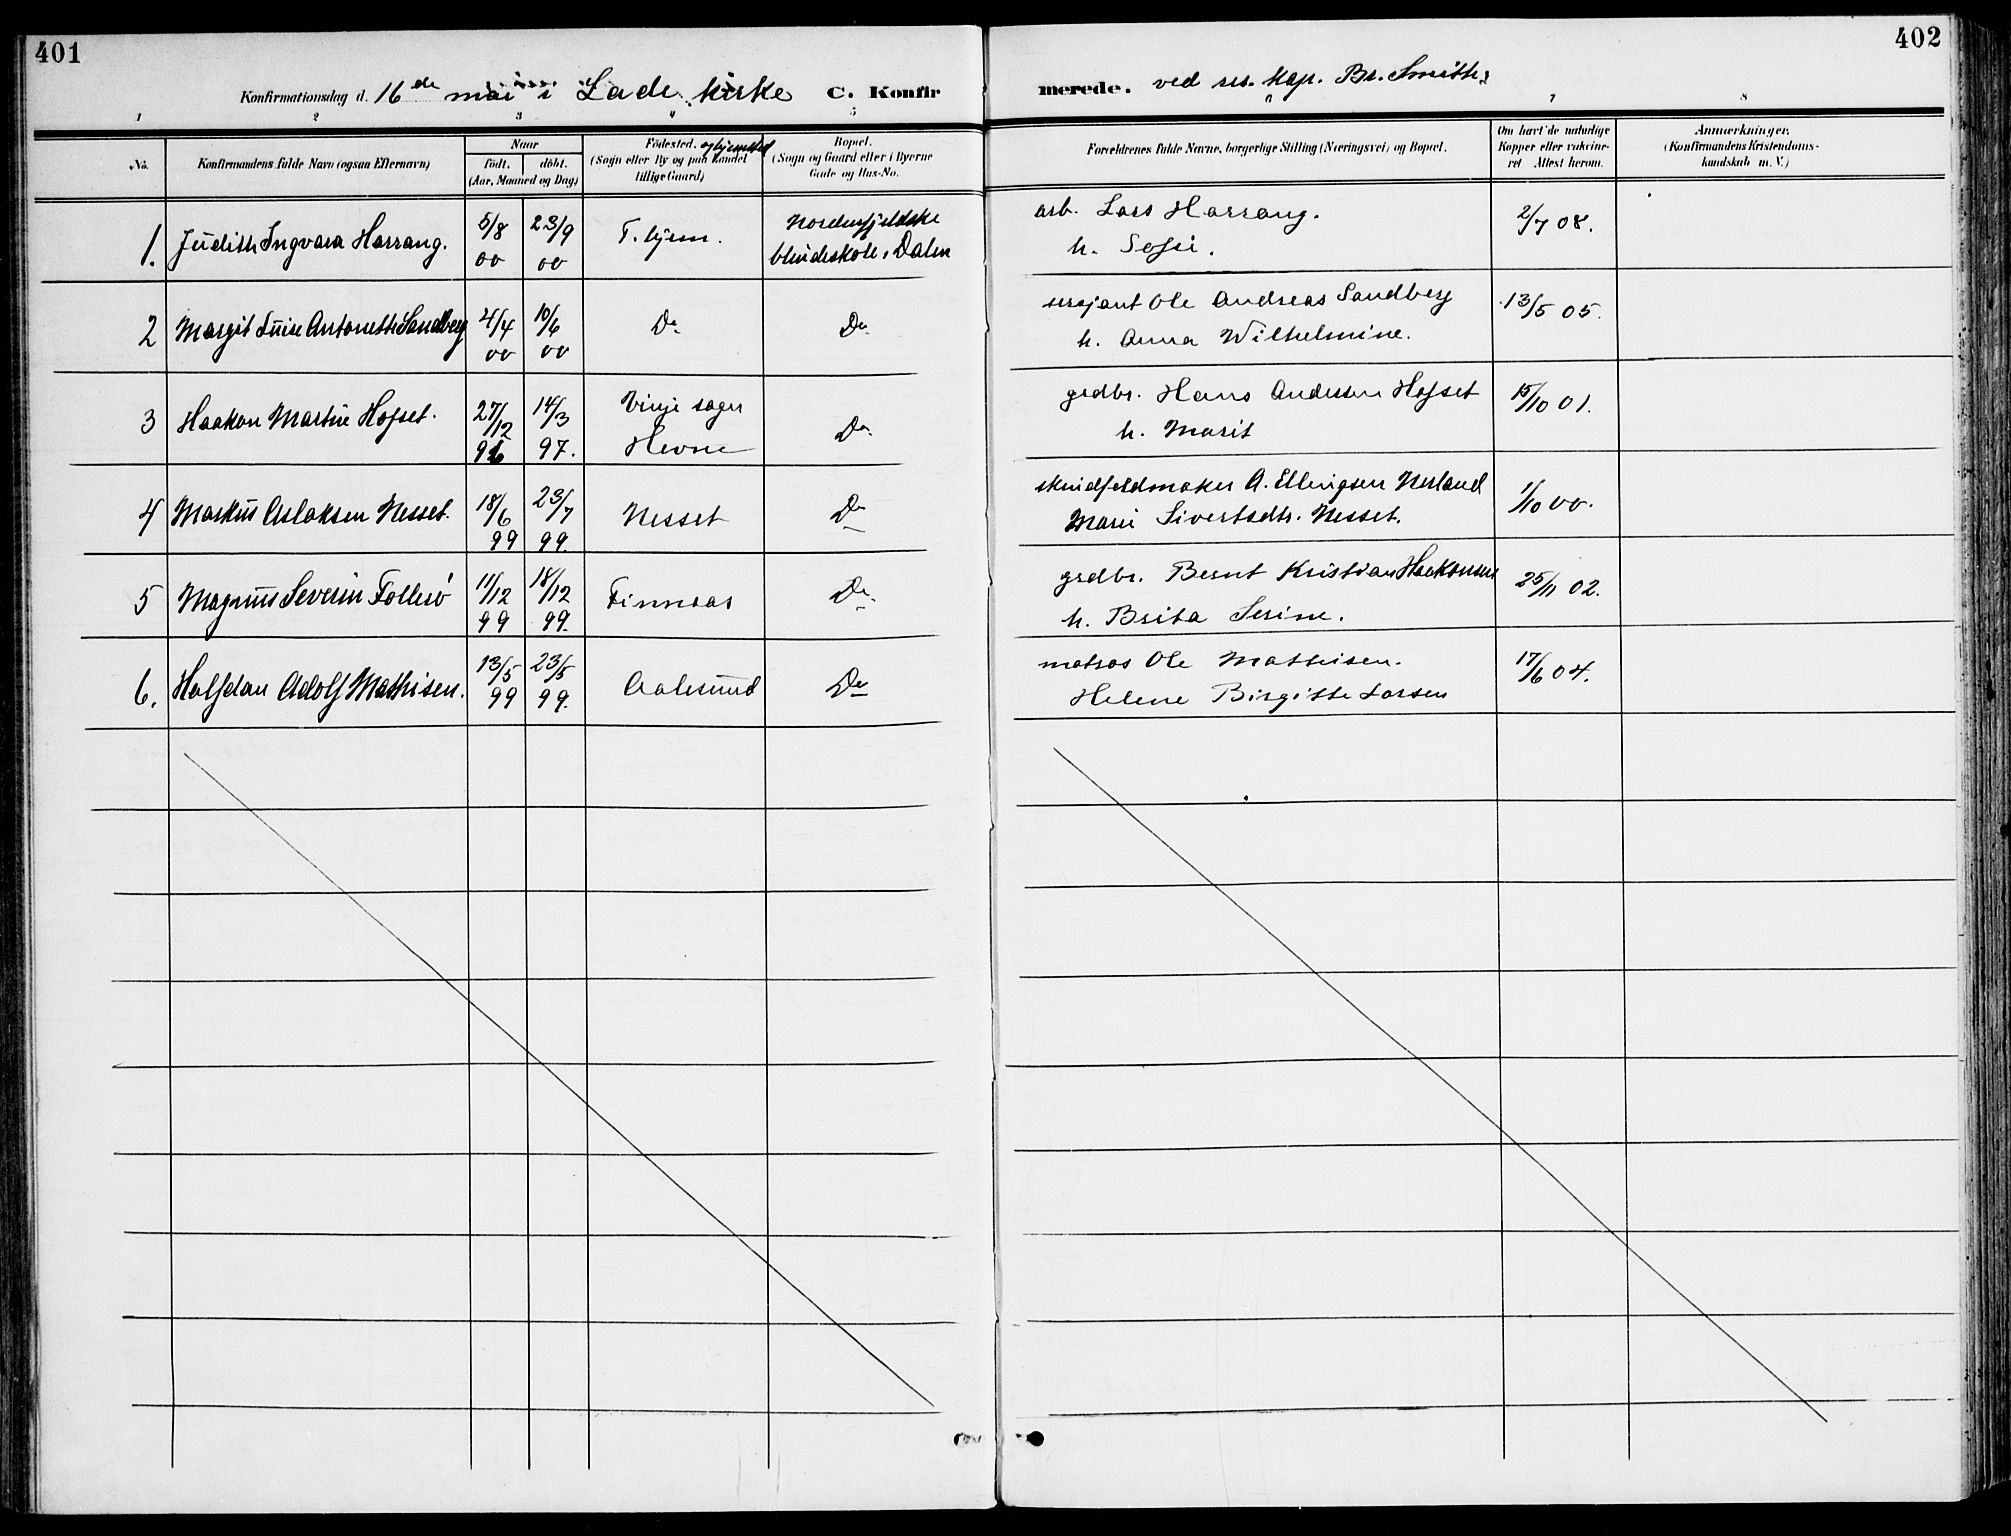 401
402
Konfirmationsdag d. 16de mai i Lade kirke C. Konfir
merede. ved res. kap. Br. Smith.
1 2 3 4 5 6 7 8
No.
Konfirmandens fulde Navn (ogsaa Efternavn)
Naar
født. døbt.
(Aar, Maaned og Dag)
Fødested. og hjemsted
(Sogn eller By og paa Landet
tillige Gaard)
Bopæl.
(Sogn og Gaard eller i Byerne
Gade og Hus-No.
Forældrenes fulde Navne, borgerlige Stilling (Næringsvei) og Bopæl.
Om havt de naturlige
Kopper eller vakcine-
ret Attest herom.
Anmærkninger.
(Konfirmandens Kristendoms-
kundskab m. V.)
1. Judith Ingvara Harrang. 5/8 00 23/9 00 T.hjem. Nordenfjeldske
blindeskole, Dalen
arb. Lars Harrang.
h. Sofie.
2/7 08.
2 Margit Luise Antonette Sandberg 4/4 00 10/6 00 Do Do
sersjant Ole Andreas Sandberg
h. Anna Wilhelmine.
13/5 05.
3 Haakon Martin Hofset. 27/12 96 14/3 97. Vinje sogn
Hevne Do
grdbr. Hans Andersen Hofset
h. Marit
15/10 01.
4 Markus Aslaksen Nesset. 18/6 99 23/7 99. Nesset Do
skindfeldmaker A. Ellingsen Nerland
Marie Sivertsdtr. Nesset.
1/10 00.
5 Magnus Severin Follesø 11/12 99 18/12 99. Finnaas Do
grdbr. Bernt Kristian Haakonsen
h. Brita Serine.
25/11 02.
6. Halfdan Adolf Mathisen. 13/5 99 23/5 99. Aalesund Do
matros Ole Mathisen.
Helene Birgitte Larsen
17/6 04.